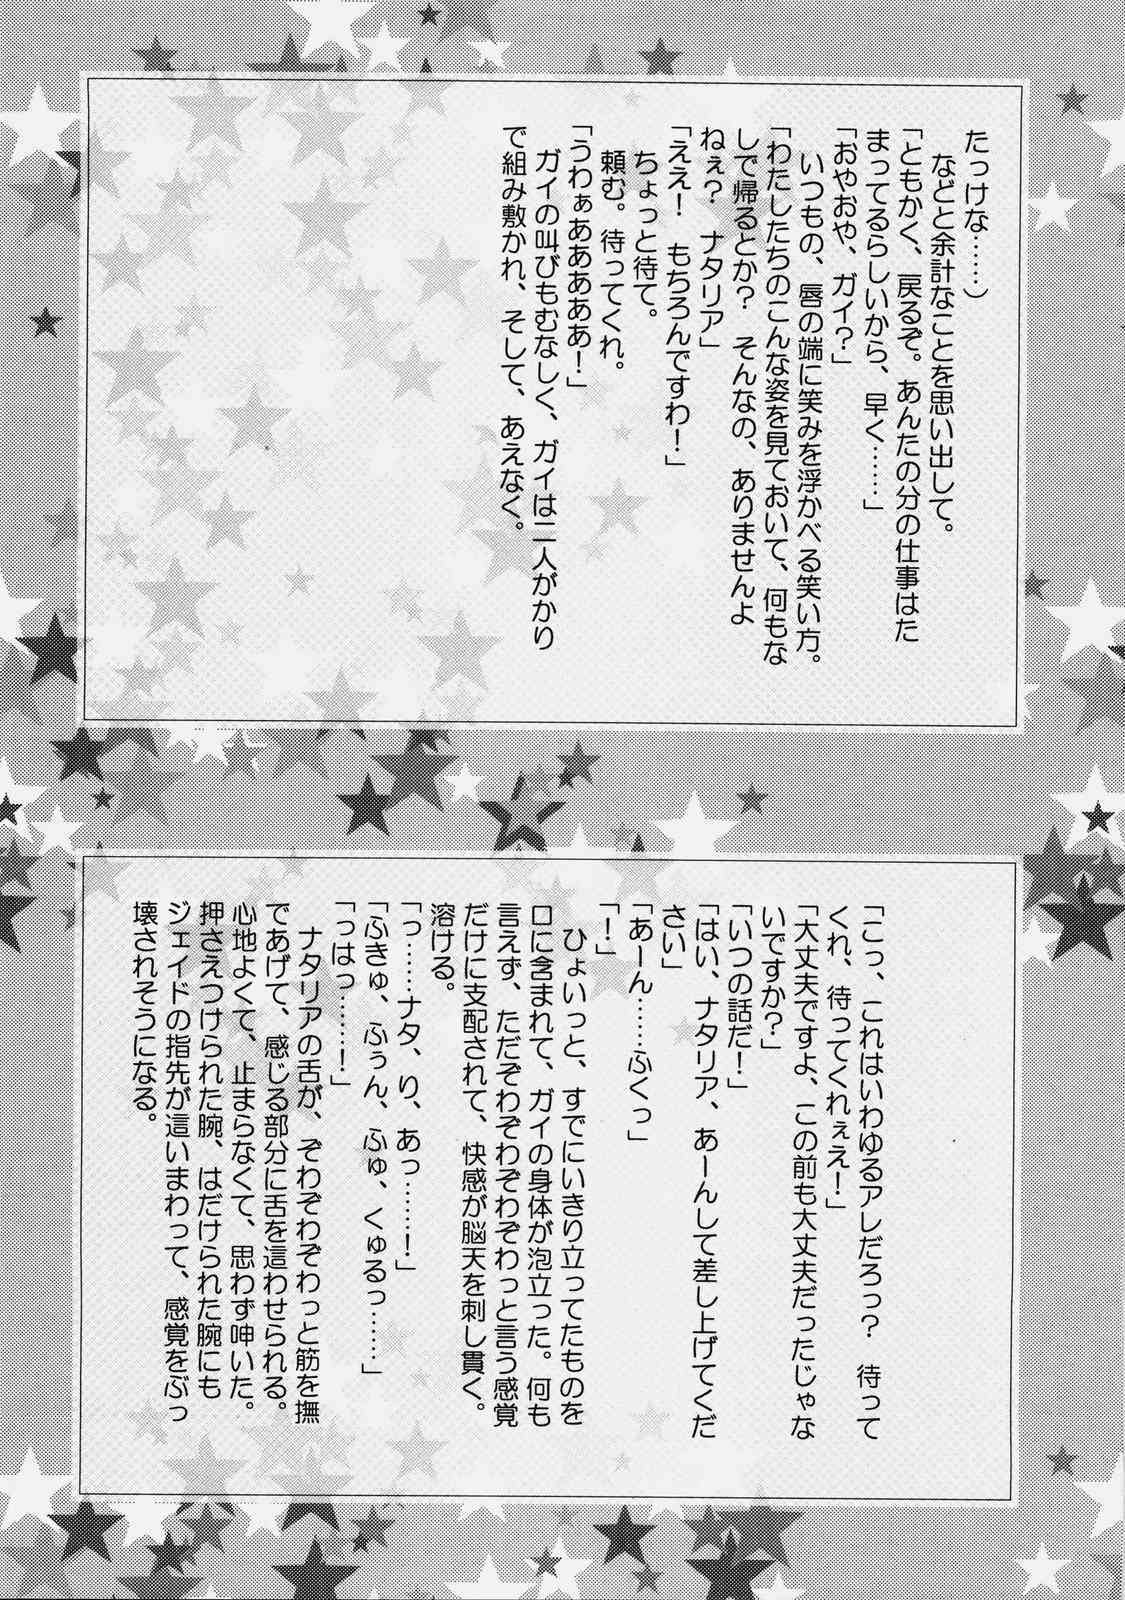 たっけな……)
などと余計なことを思い出して。
「ともかく、戻るぞ。あんたの分の仕事はた
まってるらしいから、早く……」
「おやおや、ガイ？」
いつもの、唇の端に笑みを浮かべる笑い方。
「わたしたちのこんな姿を見ておいて、何もな
しで帰るとか？　そんなの、ありませんよ
ねぇ？　ナタリア」
「ええ！　もちろんですわ！」
ちょっと待て。
頼む。待ってくれ。
「うわぁあああああ！」
ガイの叫びもむなしく、ガイは二人がかり
で組み敷かれ、そして、あえなく。
「こっ、これはいわゆるアレだろっ？　待って
くれ、待ってくれぇえ！」
「大丈夫ですよ、この前も大丈夫だったじゃな
いですか？」
「いつの話だ！」
「はい、ナタリア、あーんして差し上げてくだ
さい」
「あーん……ふくっ」
「！」
ひょいっと、すでにいきり立ってたものを
口に含まれて、ガイの身体が泡立った。何も
言えず、ただぞわぞわぞわぞわっと言う感覚
だけに支配されて、快感が脳天を刺し貫く。
溶ける。
「っ……ナタ、り、あっ……！」
「ふきゅ、ふぅん、ふゅ、くゅるっ……」
「っはっ……！」
ナタリアの舌が、ぞわぞわぞわっと筋を撫
であげて、感じる部分に舌を這わせられる。
心地よくて、止まらなくて、思わず呻いた。
押さえつけられた腕、はだけられた腕にも
ジェイドの指先が這いまわって、感覚をぶっ
壊されそうになる。